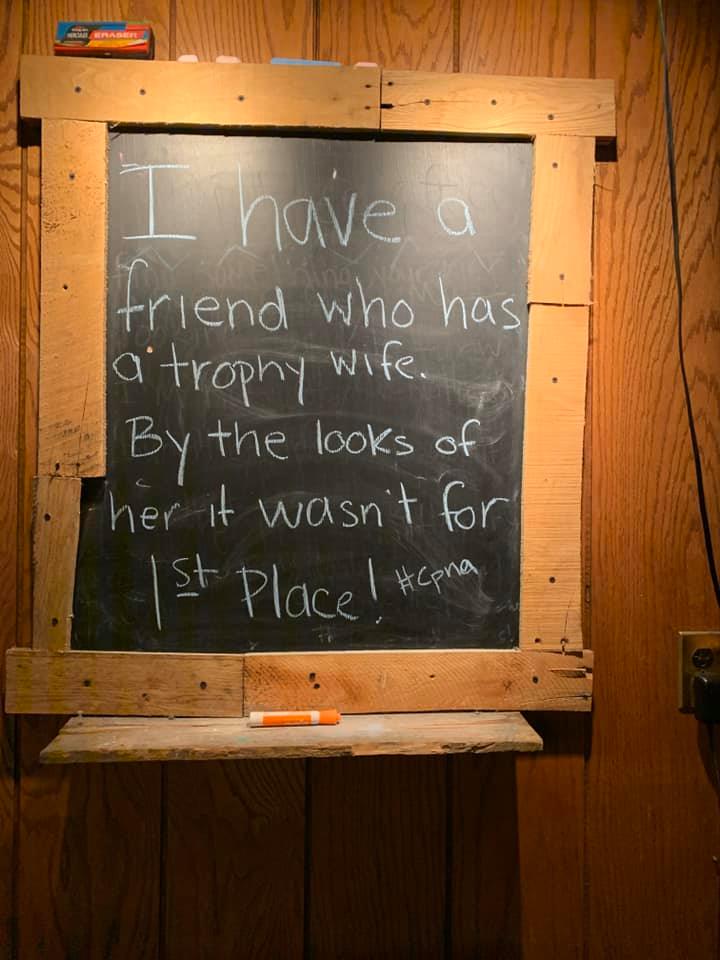 ERASER
I have a
friend who has
a trophy wife.
By the looks of
her it wasn't for
1st Place! #cpna